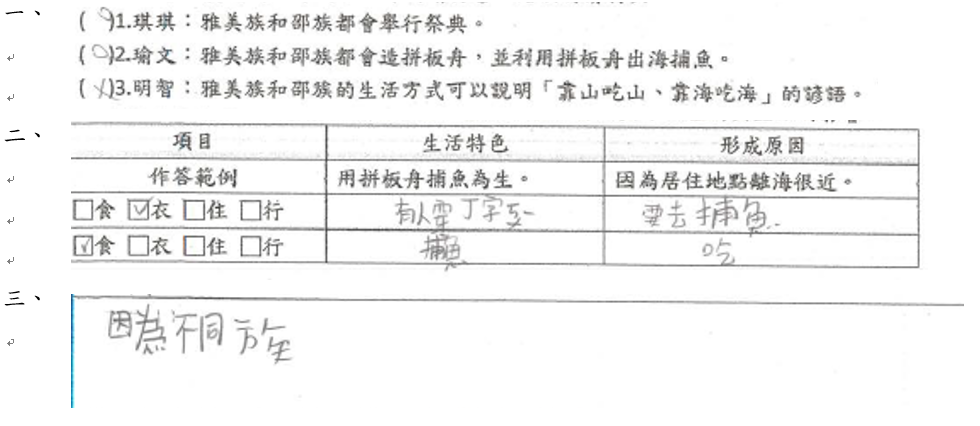 一、
( ○)1.琪琪：雅美族和邵族都會舉行祭典。
( ○)2.瑜文：雅美族和邵族都會造拼板舟，並利用拼板舟出海捕魚。
( X)3.明智：雅美族和邵族的生活方式可以說明「靠山吃山、靠海吃海」的諺語。
二、
項目 生活特色 形成原因
作答範例 用拼板舟捕魚為生。 因為居住地點離海很近。
□食 ☑衣 □住 □行 丁字 要去捕魚
☑食 □衣 □住 □行 捕魚 吃
三、
因為不同族